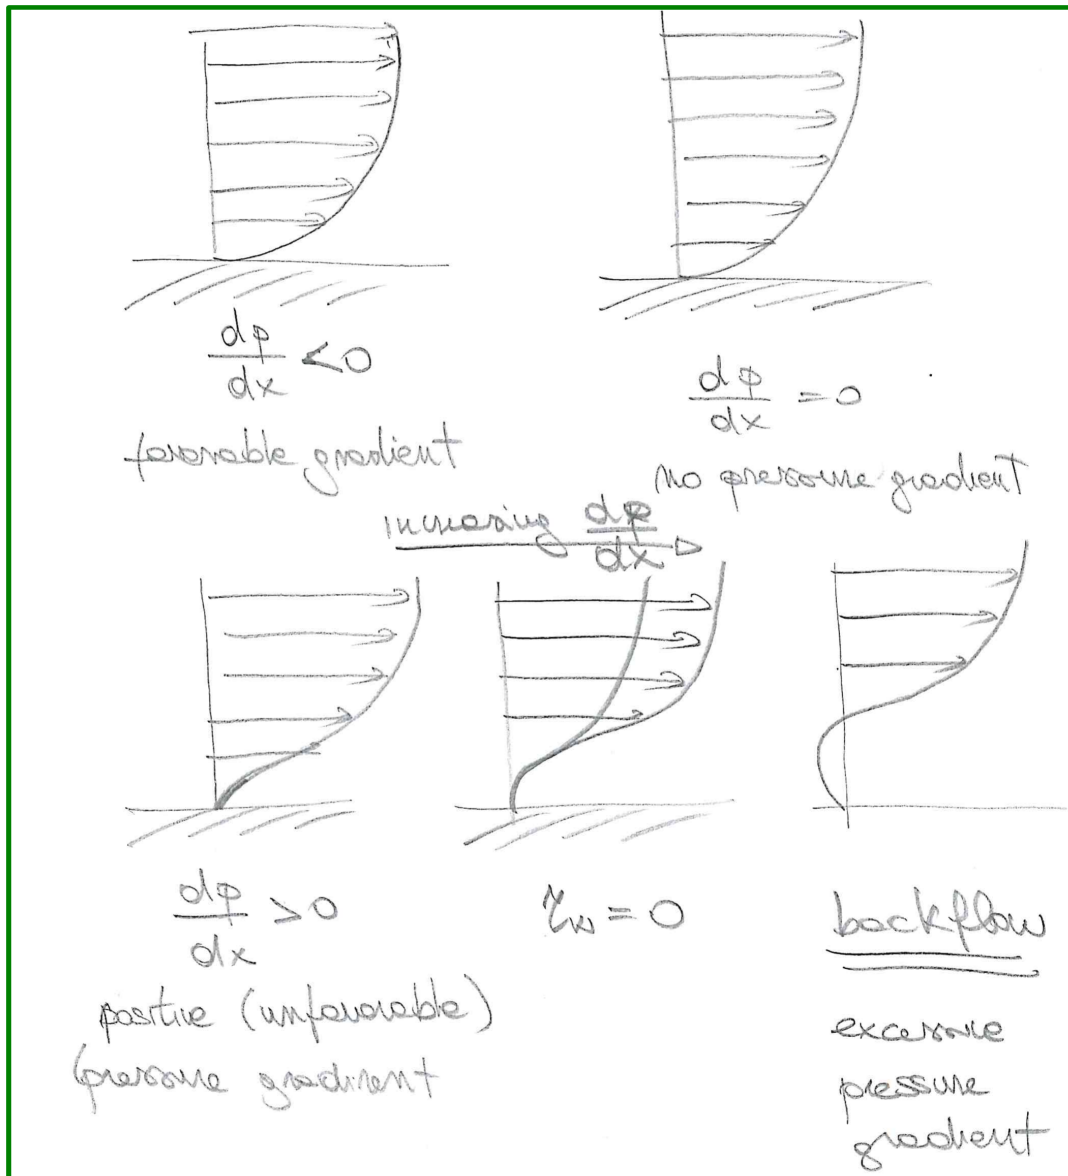 dp/dx < 0
favorable gradient
dp/dx = 0
no pressure gradient
increasing dp/dx
dp/dx > 0
positive (unfavorable)
pressure gradient
τw = 0
backflow
excessive
pressure
gradient